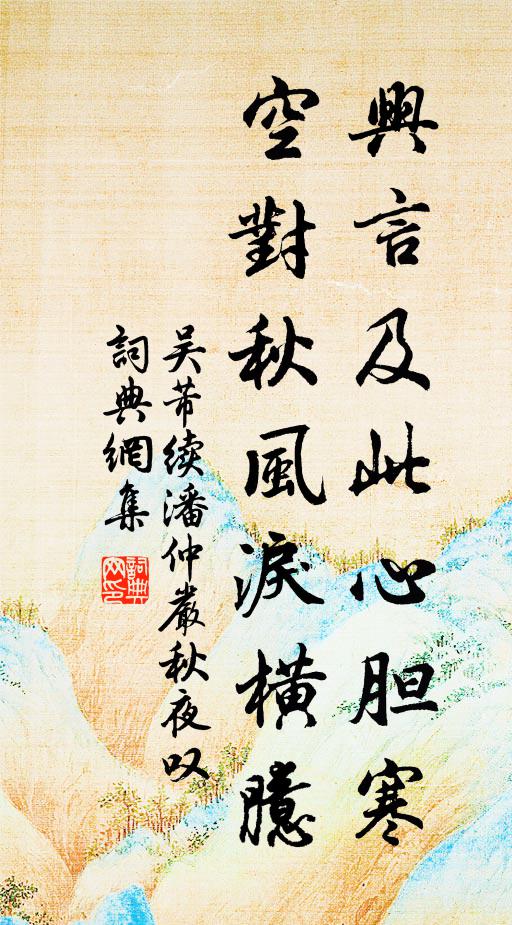 興言及此心胆寒
空對秋風淚橫臆
吴芾续潘仲嚴秋夜叹
詞典網集
詞典網印